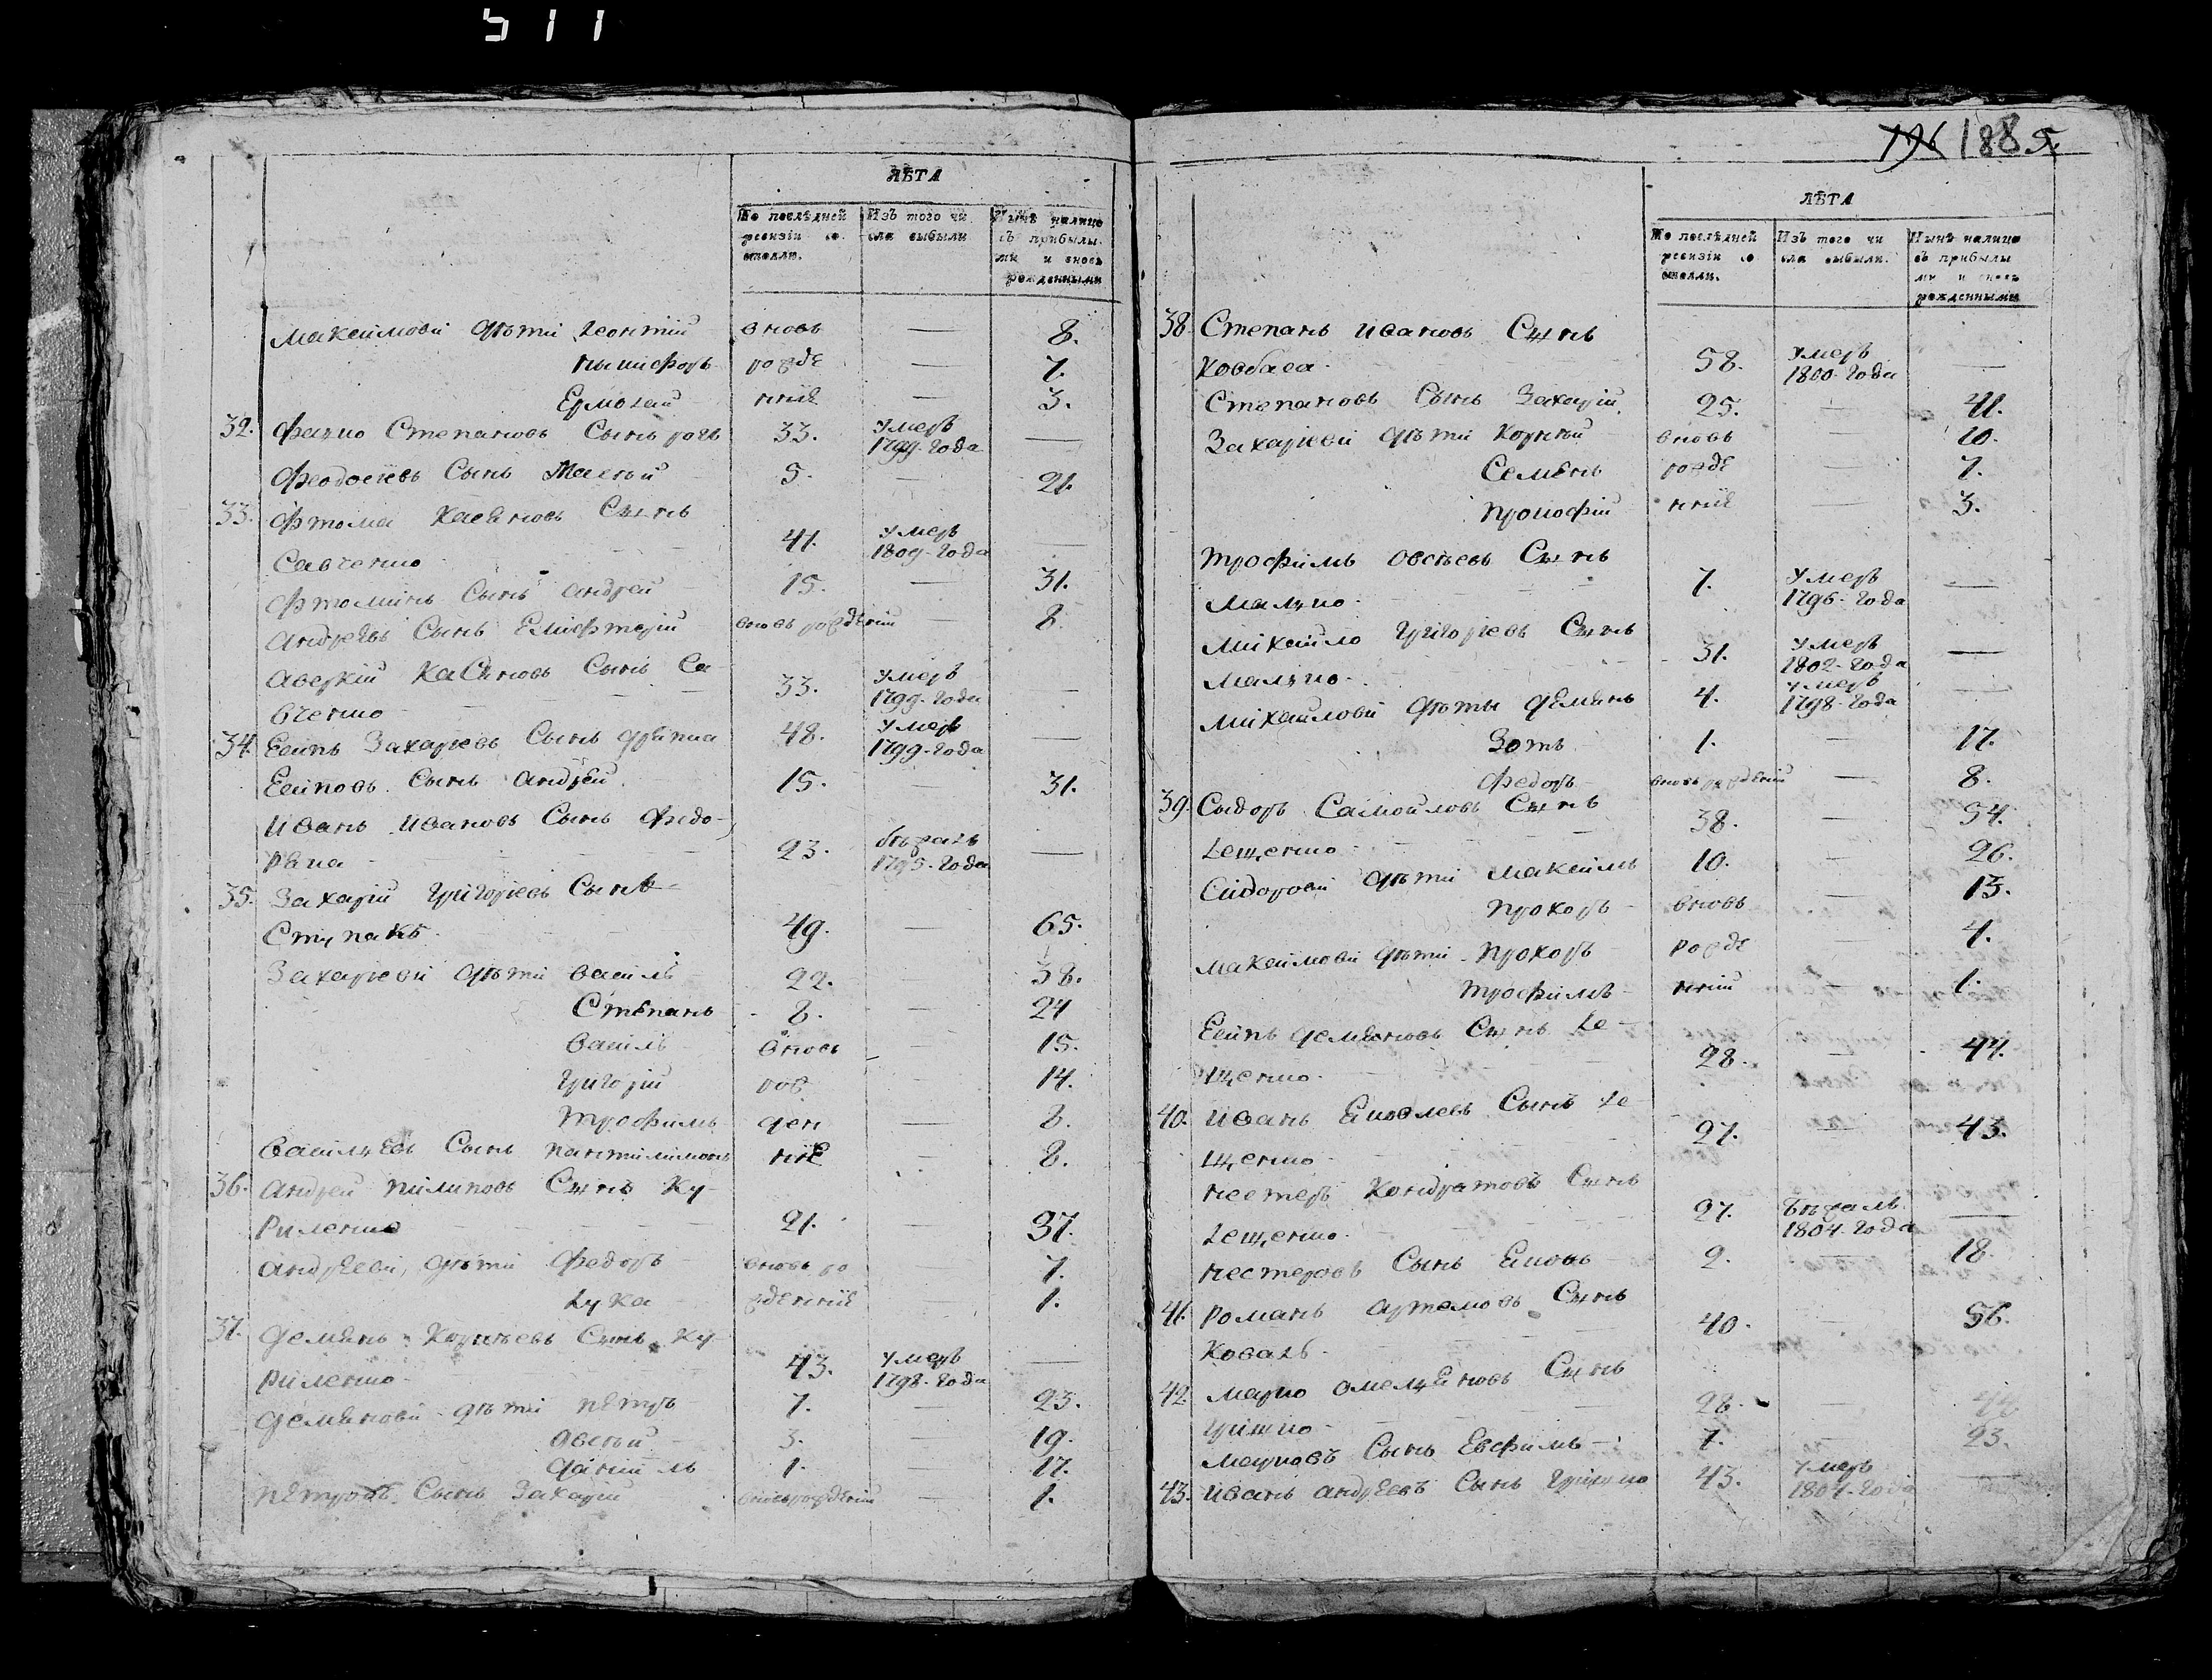 511
ЛѢТА
По послѣдней ревизіи состояло.
Изъ того числа выбыли
Нынѣ налицо съ прибылыми и вновь рожденными
Максимови дѣти Леонтій вновь — 8.
Никифоръ рожде — 7.
Ермолай нніе — 3.
32. Степановъ Сынъ 33. Умеръ 1799. Года —
Феодосіевъ Сынъ 5. — 21.
33. Фтома Касяновъ Сынъ
Савченко 41. Умеръ 1809. Года —
Фтоминъ Сынъ Андрей 15. — 31.
Андреевъ Сынъ Елифтерій вновь рожденій — 8.
Аверкій Касяновъ Сынъ Са-
вченко 33. Умеръ 1799. Года —
34. Есипъ Захаріевъ Сынъ 48. Умеръ 1799. Года —
Есиповъ Сынъ Андрей 15. — 31.
Иванъ Ивановъ Сынъ Федо-
рвка 23. бѣжалъ 1795. Года —
35. Захарій Григоріевъ Сынъ
Ступакъ 49. — 65.
Захаріеви дѣти Василь 22. — 38.
Степанъ 8. — 24
Василь вновь — 15.
Григорій рож — 14.
Трофимъ ден — 8.
Василіевъ Сынъ Пантилимонъ ніе — 8.
36. Андрей Пилиповъ Сынъ Ку-
риленко 21. — 37.
Андрееви дѣти Федоръ вновь ро — 7.
Лука жденніе — 1.
37. Демянъ Корнѣевъ Сынъ Ку-
риленко 43. Умеръ 1798. Года —
Демянови дѣти Петръ 7. — 23.
Овсѣй 3. — 19.
Даніилъ 1. — 17.
Петровъ Сынъ Захарій вновь рожденій — 1.
196 188 5.
ЛѢТА
По послѣдней ревизіи состояло.
Изъ того числа выбыли.
Нынѣ налицо съ прибылыми и вновь рожденными
38. Степанъ Ивановъ Сынъ
Ковбаса 58. Умеръ 1800. Года —
Степановъ Сынъ Захарій 25. — 41.
Захаріеви дѣти Корнѣй вновь — 10.
Семенъ рожде — 7.
Прокофій нніе — 3.
Трофимъ Овсѣевъ Сынъ
Малко 7. Умеръ 1796. Года —
Михайло Григоріевъ Сынъ
Малко 31. Умеръ 1802. Года —
Михайлови дѣты Демянъ 4. Умеръ 1798. Года —
Зотъ 1. — 17.
Федоръ вновь рожденій — 8.
39. Сыдоръ Самойловъ Сынъ
Лещенко 38. — 54.
Сидорови дѣти Максимъ 10. — 26.
Прохоръ вновь — 13.
Максимови дѣти Прохоръ рожде — 4.
Трофимъ нній — 1.
Есипъ Демяновъ Сынъ Ле-
щенко 28. — 44.
40. Иванъ Яковлевъ Сынъ Ле-
щенко 27. — 43.
Нестеръ Кондратовъ Сынъ
Лещенко 27. Бѣжалъ 1804. Года —
Нестеровъ Сынъ Яковъ 2. — 18.
41. Романъ Артемовъ Сынъ
Коваль 40. — 56.
42. Марко Омеляновъ Сынъ
Гришко 28. — 44
Марковъ Сынъ Евфимъ 7. — 23.
43. Иванъ Андреевъ Сынъ Гришко 43. Умеръ 1804. Года —